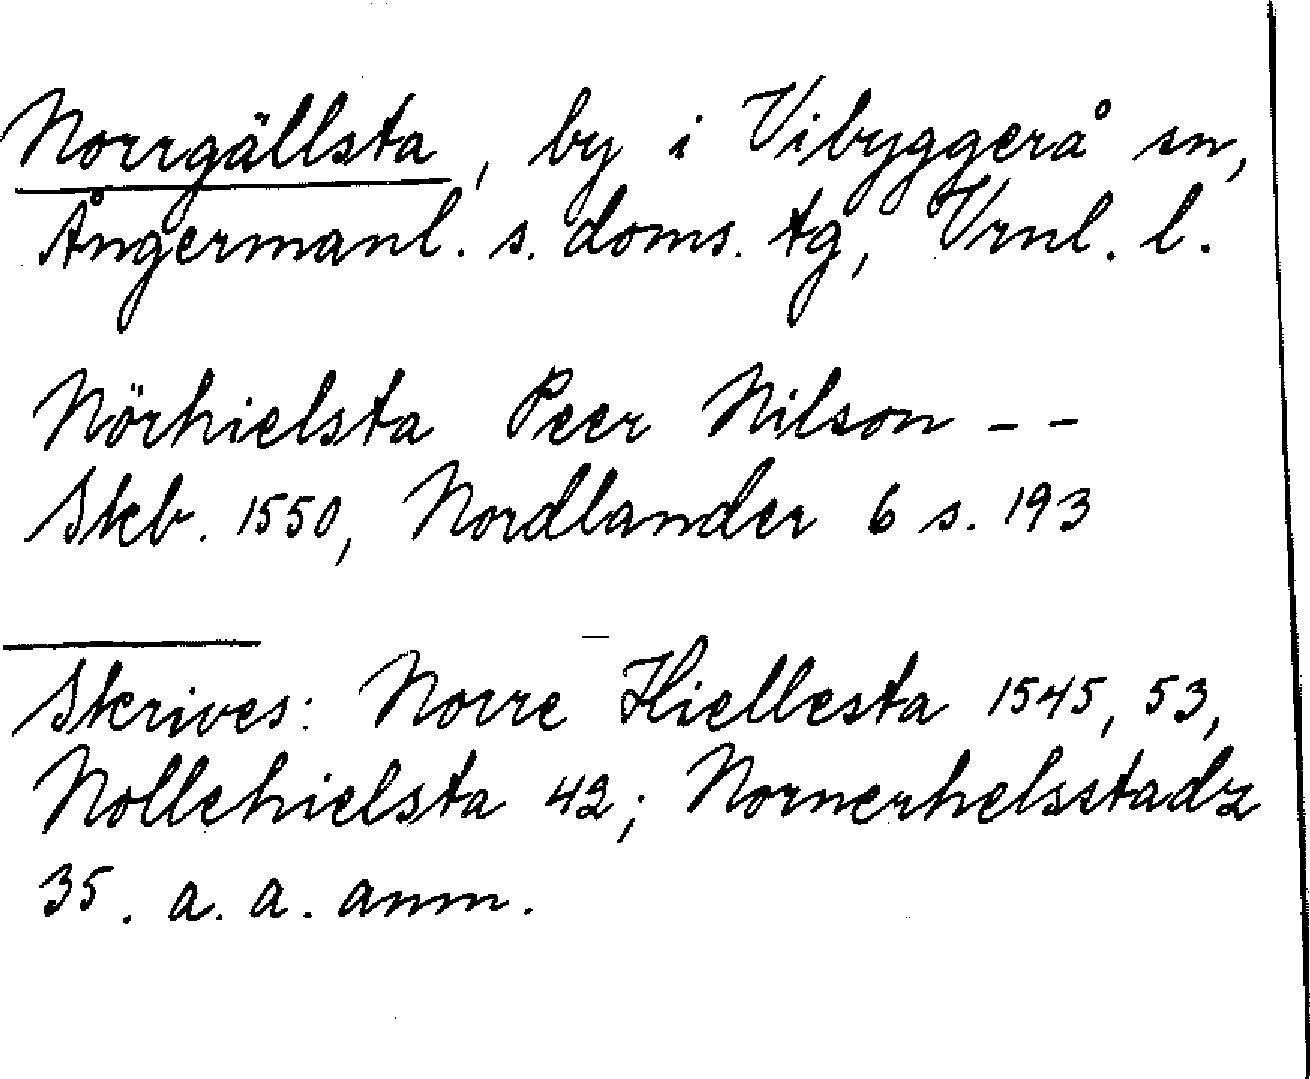 Norrgällsta, by i Vibyggerå sn,
Ångermanl. s. doms. tg, Vrnl. l.
Nörhielsta Peer Nilson - -
Skb. 1550, Nordlander 6 s. 193
Skrives: Norre Hiellesta 1545, 53,
Nollehielsta 42; Nornerhelsstadz
35. a. a. anm.